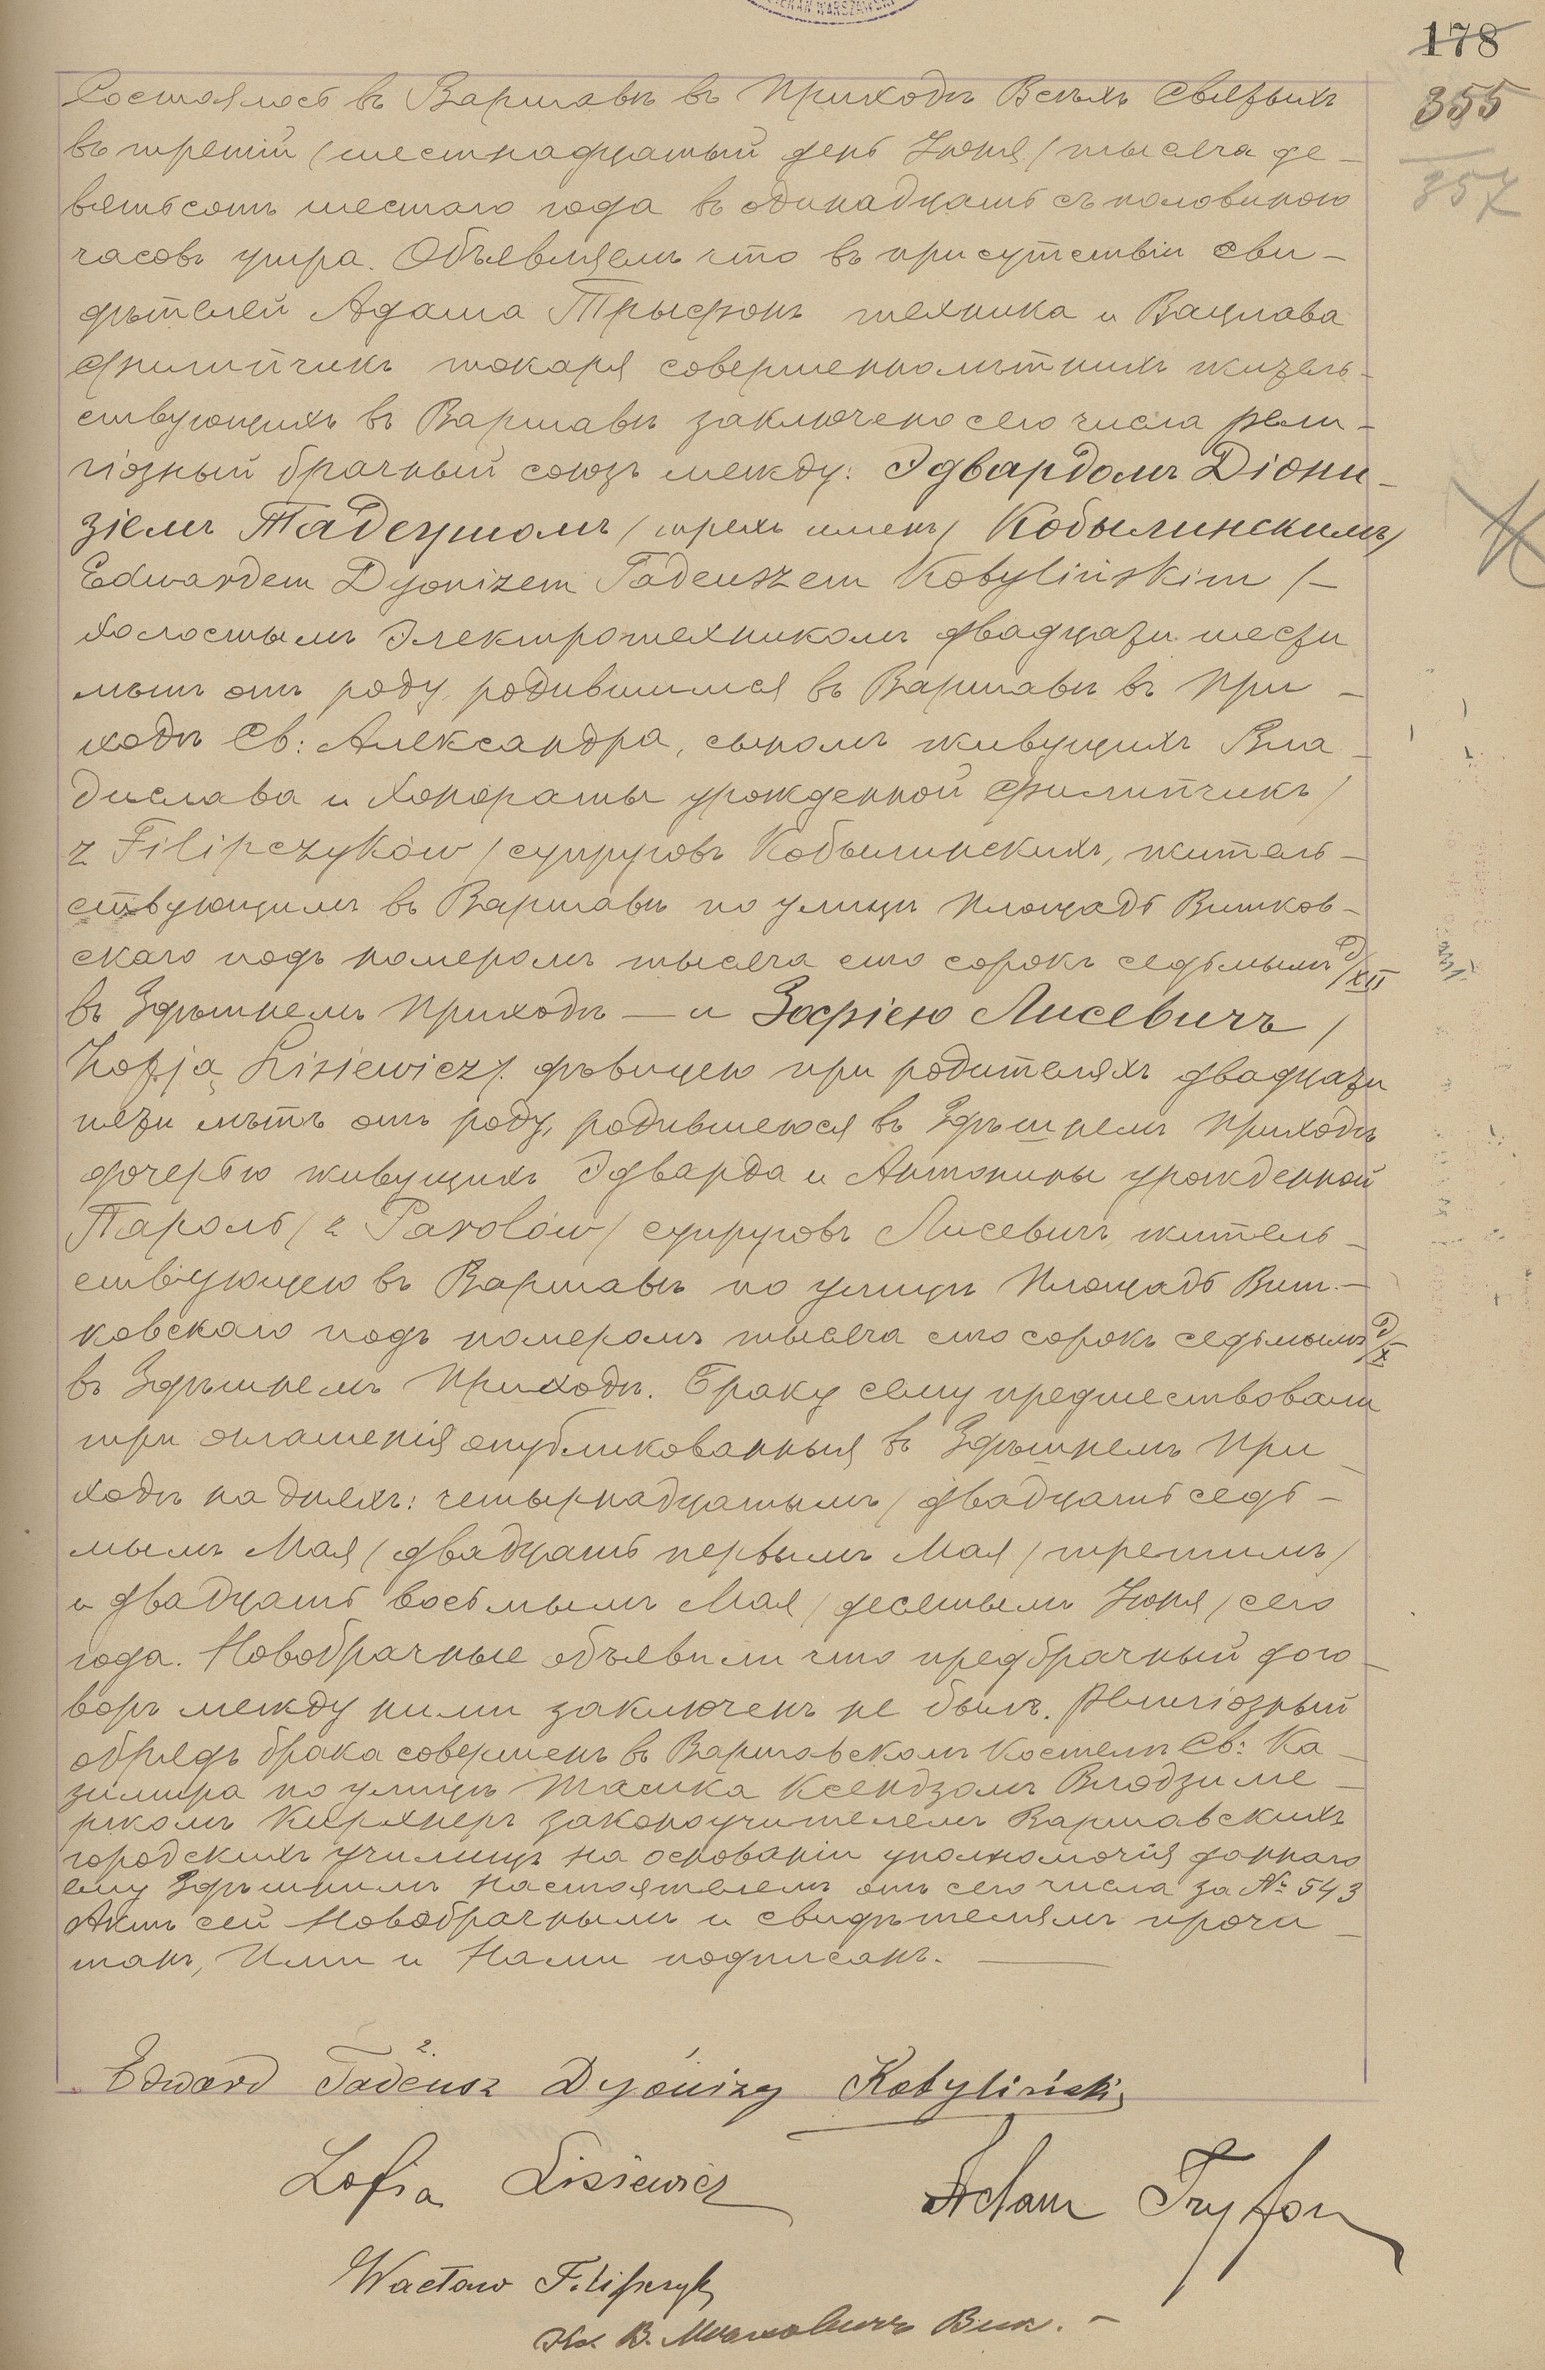 178
355
357
Состоялось въ Варшавѣ въ Приходѣ Всѣхъ Святыхъ
въ третій (шестнадцатый день Іюня) тысяча де-
вятьсотъ шестаго года въ одинадцать съ половиною
часовъ утра. Объявляемъ что въ присутствіи сви-
дѣтелей Адама Трыфонъ техника и Вацлава
Филипчикъ токаря совершеннолѣтнихъ житель-
ствующихъ въ Варшавѣ заключено сего числа рели-
гіозный брачный союзъ между: Эдвардомъ Діони-
зіемъ Тадеушомъ (трехъ именъ) Кобылинскимъ/
Edwardem Dyonizem Tadeuszem Kobylińskim /-
холостымъ Электротехникомъ двадцати шести
лѣтъ отъ роду, родившимся въ Варшавѣ въ При-
ходѣ Св: Александра, сыномъ живущихъ Вла-
дислава и Хонораты урожденной Филипчикъ/
z Filipczyków / супруговъ Кобылинскихъ, житель-
ствующимъ въ Варшавѣ по улицѣ Площадь Витков-
скаго подъ номеромъ тысяча сто сорокъ седьмымъ д/XII
въ Здѣшнемъ Приходѣ — и Зофіею Лисевичъ /
Zofją Lisiewicz/. дѣвицею при родителяхъ двадцати
пяти лѣтъ отъ роду, родившеюся въ Здѣшнемъ Приходѣ
дочерью живущихъ Эдварда и Антонины урожденной
Пароль / z Parolów / супруговъ Лисевичъ, житель-
ствующею въ Варшавѣ по улицѣ Площадь Вит-
ковскаго подъ номеромъ тысяча сто сорокъ седьмымъ д/X
въ Здѣшнемъ Приходѣ. Браку сему предшествовали
три оглашенія опубликованныя въ Здѣшнемъ При-
ходѣ на дняхъ: четырнадцатымъ / двадцать седь-
мымъ Мая / двадцать первымъ Мая / третимъ /
и двадцать восьмымъ Мая / десятымъ Іюня / сего
года. Новобрачные объявили что предбрачный дого-
воръ между ними заключенъ не былъ. Религіозный
обрядъ брака совершенъ въ Варшавскомъ Костелѣ Св: Ка-
зимира по улицѣ Тамка Ксендзомъ Влодзиме-
ржомъ Кирхнеръ законоучителемъ Варшавскихъ
городскихъ училищъ на основаніи уполномочія даннаго
ему Здѣшнимъ Настоятелемъ отъ сего числа за № 543
Актъ сей Новобрачнымъ и свидѣтелямъ прочи-
танъ, Ими и Нами подписанъ. —
Edward Tadeusz 2. Dyonizy Kobyliński
Zofia Lisiewicz Adam Tryfon
Wacław Filipczyk
Кс. В. Вик. -